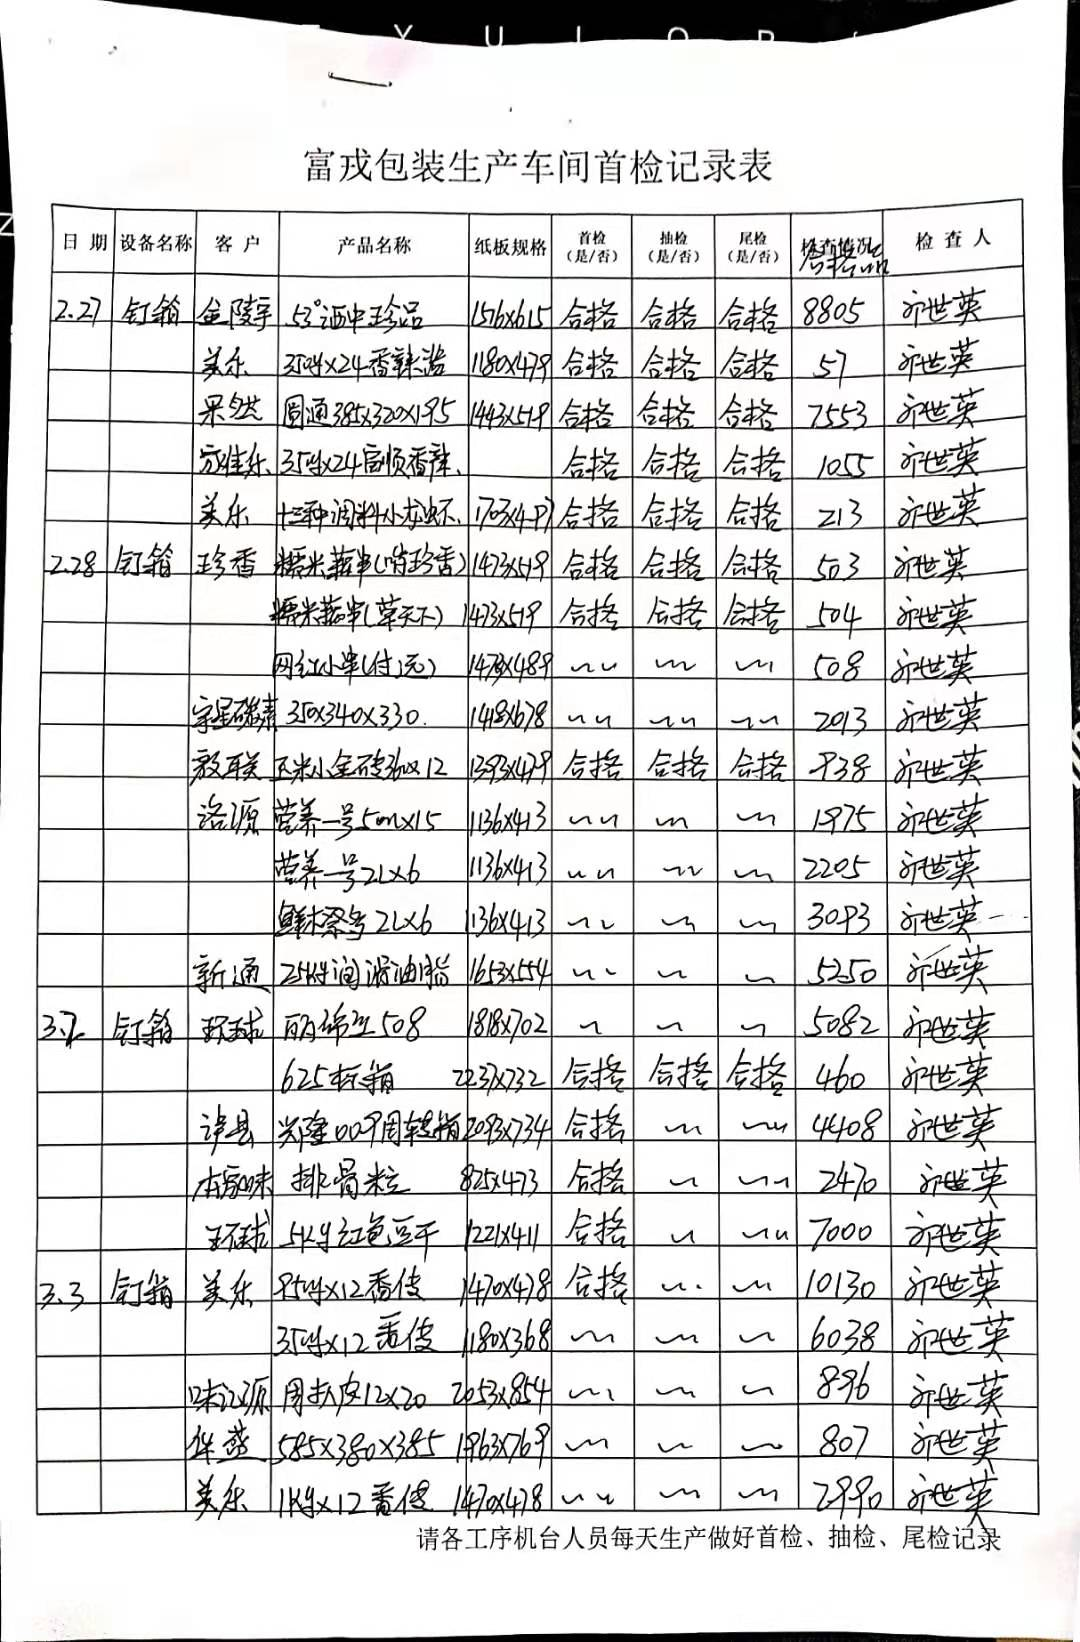 富戎包装生产车间首检记录表
日期 设备名称 客户 产品名称 纸板规格 首检（是/否） 抽检（是/否） 尾检（是/否） 合格品 检查人
2.27 钉箱 金陵宇 53°酒中珍品 1576x615 合格 合格 合格 8805 世英
美乐 350g x24香辣酱 1180x479 合格 合格 合格 57 世英
果然 圆通385x320x195 1443x519 合格 合格 合格 7553 世英
佳乐 350g x24富顺香辣 合格 合格 合格 1055 世英
美乐 十三种调料小龙虾 1703x497 合格 合格 合格 213 世英
2.28 钉箱 珍香 糯米藕串(啃珍香) 1473x519 合格 合格 合格 503 世英
糯米藕串(草天下) 1473x519 合格 合格 合格 504 世英
网红小串(付远) 1473x489 〃 〃 〃 508 世英
碳素 350x340x330 1418x678 〃 〃 〃 2013 世英
联 玉米小金砖 x12 1393x479 合格 合格 合格 938 世英
洛源 营养一号5 x15 1136x413 〃 〃 〃 1975 世英
营养一号2Lx6 1136x413 〃 〃 〃 2205 世英
鲜 2Lx6 1136x413 〃 〃 〃 3093 世英
新通 25kg润滑油脂 1653x554 〃 〃 〃 5250 世英
3.2 钉箱 环球 508 1818x702 〃 〃 〃 5082 世英
625标箱 2237x732 合格 合格 合格 460 世英
泸县 兴隆009周转箱 2093x734 合格 〃 〃 4408 世英
味 排骨粒 825x473 合格 〃 〃 2470 世英
环球 5kg红色豆干 1221x411 合格 〃 〃 7000 世英
3.3 钉箱 美乐 950g x12番传 1470x478 合格 〃 〃 10130 世英
350g x12番传 1180x368 〃 〃 〃 6038 世英
味江源 周 皮12x20 2053x854 〃 〃 〃 896 世英
华盛 585x380x385 1963x769 〃 〃 〃 807 世英
美乐 1kg x12番传 1470x478 〃 〃 〃 2990 世英
请各工序机台人员每天生产做好首检、抽检、尾检记录